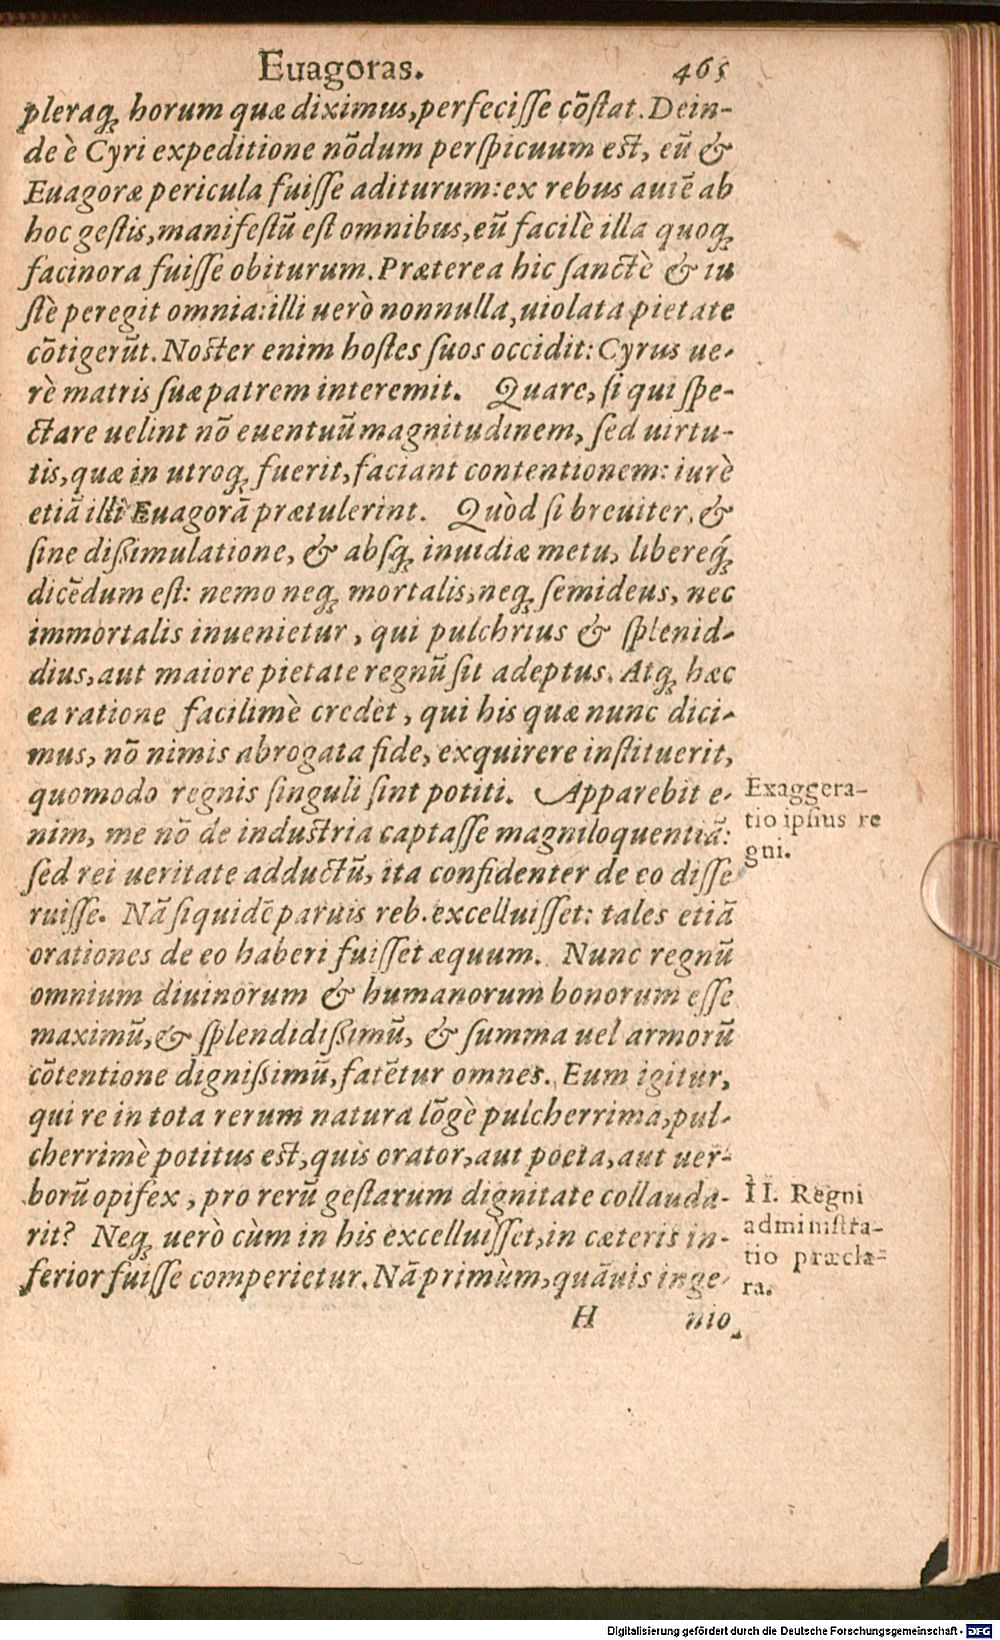 Euagoras. 465
pleraq; horum quæ diximus, perfeciſſe cõſtat. Dein-
de è Cyri expeditione nõdum perſpicuum est, eũ &
Euagoræ pericula fuiſſe aditurum: ex rebus autẽ ab
hoc geſtis, manifeſtũ eſt omnibus, eũ facilè illa quoq;
facinora fuiſſe obiturum. Præterea hic ſanctè & iu
ſtè peregit omnia: illi uerò nonnulla, uiolata pietate
cõtigerũt. Noster enim hoſtes ſuos occidit: Cyrus ue-
rè matris ſuæ patrem interemit. Quare, ſi qui ſpe-
ctare uelint nõ euentuũ magnitudinem, ſed uirtu-
tis, quæ in utroq; fuerit, faciant contentionem: iurè
etiã illi Euagorã prætulerint. Quòd ſi breuiter, &
ſine dißimulatione, & abſq; inuidiæ metu, libereq́;
dicẽdum eſt: nemo neq; mortalis, neq; ſemideus, nec
immortalis inuenietur, qui pulchrius & ſplenid-
dius, aut maiore pietate regnũ ſit adeptus. Atq; hæc
ea ratione facilimè credet, qui his quæ nunc dici-
mus, nõ nimis abrogata fide, exquirere inſtituerit,
quomodo regnis ſinguli ſint potiti. Apparebit e-
nim, me nõ de industria captaſſe magniloquentiã:
ſed rei ueritate adductũ, ita confidenter de eo diſſe
ruiſſe. Nã ſiquidẽ paruis reb. excelluiſſet: tales etiã
orationes de eo haberi fuiſſet æquum. Nunc regnũ
omnium diuinorum & humanorum bonorum eſſe
maximũ, & ſplendidißimũ, & ſumma uel armorũ
cõtentione dignißimũ, fatẽtur omnes. Eum igitur,
qui re in tota rerum natura lõgè pulcherrima, pul-
cherrimè potitus est, quis orator, aut poeta, aut uer-
borũ opifex, pro rerũ geſtarum dignitate collauda-
rit? Neq; uerò cùm in his excelluiſſet, in cæteris in-
ferior fuiſſe comperietur. Nã primùm, quãuis inge-
H nio
Exaggera-
tio ipſius re
gni.
II. Regni
adminiſtra-
tio præcla-
ra.
Digitalisierung gefördert durch die Deutsche Forschungsgemeinschaft - DFG